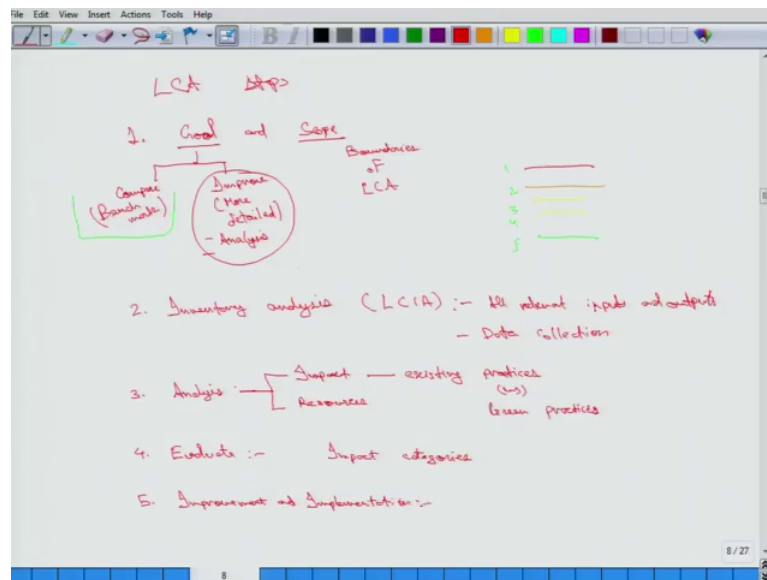 File Edit View Insert Actions Tools Help
LCA steps
1. Goal and Scope
Compare
(Bench
mark)
Improve
(More
detailed)
- Analysis
Boundaries
of
LCA
1
2
3
4
5
2. Inventory analysis (LCIA) :- All relevant inputs and outputs
- Data Collection
3. Analysis :- Impact — existing practices
(vs)
Resources Green practices
4. Evaluate :- Impact categories
5. Improvement and Implementation :-
8/27
8